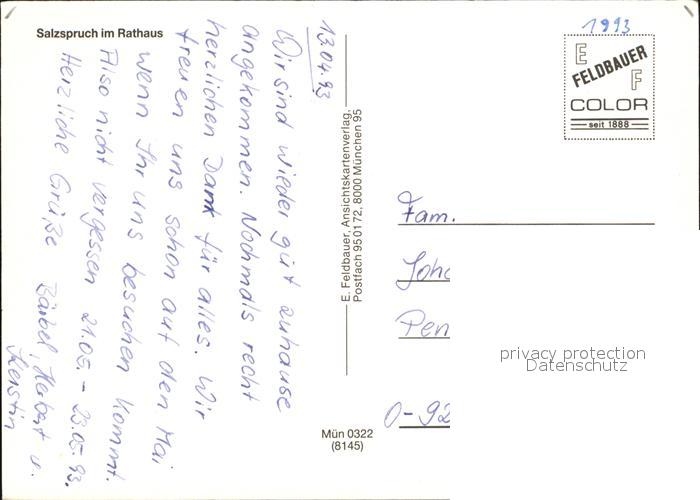 Salzspruch im Rathaus
13.04.93
Wir sind wieder gut zuhause
angekommen. Nochmals recht
herzlichen Dank für alles. Wir
freuen uns schon auf den Mai
wenn Ihr uns besuchen kommt.
Also nicht vergessen 21.05. - 23.05.93.
Herzliche Grüße Bärbel, Herbert u.
Kerstin
E. Feldbauer, Ansichtskartenverlag,
Postfach 950172, 8000 München 95
Mün 0322
(8145)
1993
E
FELDBAUER
F
COLOR
seit 1888
Fam.
Joha
Pen
privacy protection
Datenschutz
O-92